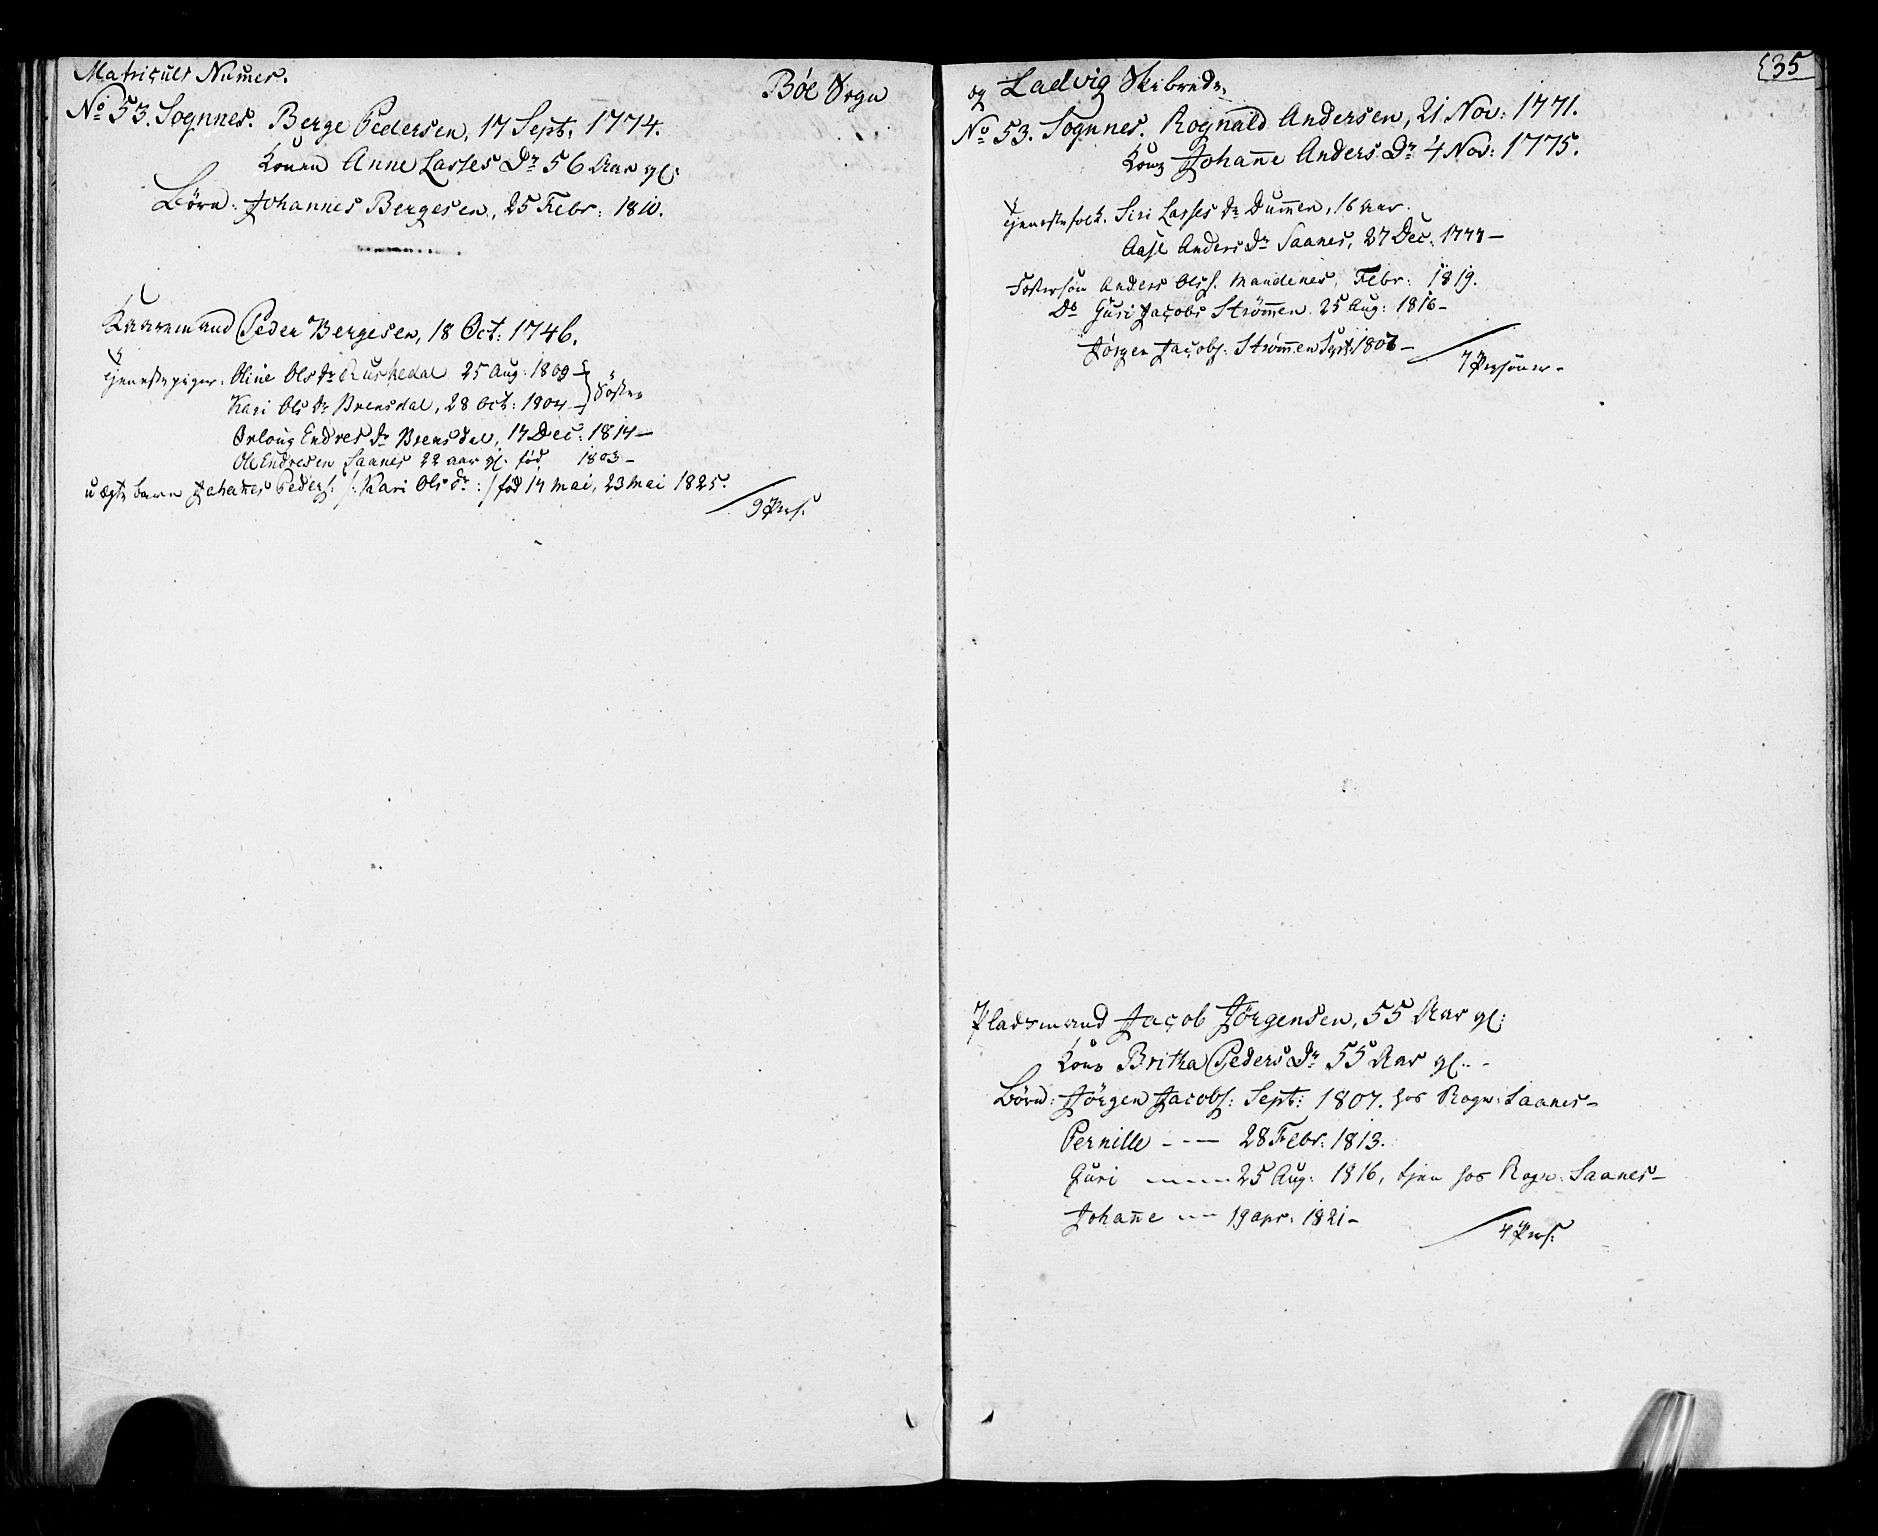 Matricüls Numer.
Bøe Sogn
No 53. Sognnes. Berge Pedersen, 17 Sept. 1774.
Konen Anne Lasses Dr 56 Aar gl:
Børn: Johannes Bergesen, 25 Febr: 1810.
Kaaremand Peder Bergesen, 18 Oct: 1746.
tjenestepiger: Oline Ols dr Ruskedal 25 Aug: 1809 –
Kari Ols dr Brensdal, 28 Oct: 1804 – Søstre
Endres dr Brensdal, 14 Dec: 1814 –
Ole Endresen Saanes 22 aar gl. fød 1803 –
uægte barn Johanes Peders: /: Kari Ols dr :/ fød 14 mai, 23 mai 1825.
9 Pers.
535
og Ladvig Skibrede
No 53. Sognnes. Rognald Andersen, 21 Nov: 1771.
Kone Johane Anders Dr 4 Nov: 1775.
tjenestefolk. Siri Lasses dr Dumen, 16 aar.
Anders dr Saanes, 27 Dec: –
Fostersøn Anders Olss. Mandenes, Febr: 1819.
Do Guri Jacobs Strømmen 25 Aug: 1816 –
Jørgen Jacobs: Strømmen Sept: 1807 –
7 Personer –
Pladsmand Jacob Jørgensen, 55 Aar gl:
Kone Britha Peders Dr 55 Aar gl. –
Børn: Jørgen Jacobs: Sept: 1807. hos Rogn: Saanes –
Pernille – – — 28 Febr: 1813.
Guri — — — 25 Aug: 1816, tjen hos Rogn: Saanes –
Johane — — 19 apr: 1821 –
4 Pers: